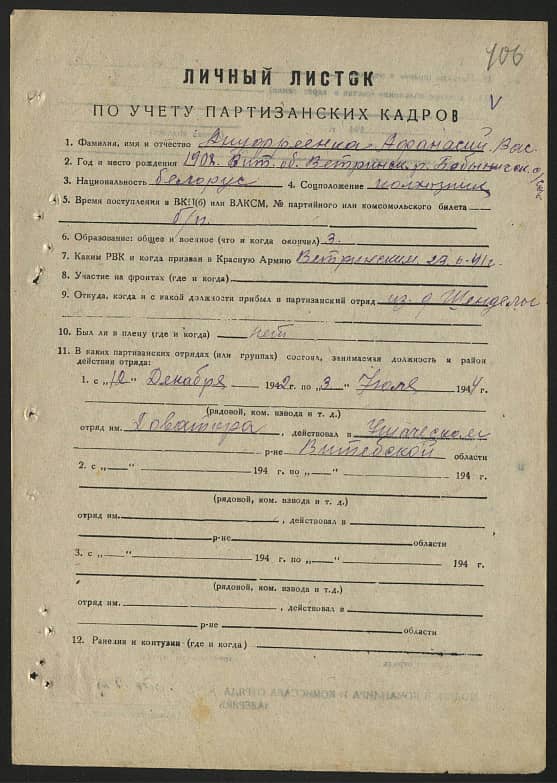 106
V
ЛИЧНЫЙ ЛИСТОК
ПО УЧЕТУ ПАРТИЗАНСКИХ КАДРОВ
1. Фамилия, имя и отчество Афанасий Вас.
2. Год и место рождения 1908 Вит. об. Ветринск. р.
3. Национальность белорус 4. Соцположение колхозник
5. Время поступления в ВКП(б) или ВЛКСМ, № партийного или комсомольского билета
б/п
6. Образование: общее и военное (что и когда окончил) 3.
7. Каким РВК и когда призван в Красную Армию Ветринским 23.6-41г.
8. Участие на фронтах (где и когда)
9. Откуда, когда и с какой должности прибыл в партизанский отряд из д
10. Был ли в плену (где и когда) нет
11. В каких партизанских отрядах (или группах) состоял, занимаемая должность и район
действия отряда:
1. с „12“ Декабря 1942г. по „3“ Июля 1944г.
(рядовой, ком. взвода и т. д.)
отряд им. Доватора, действовал в Ушачском
р-не Витебской области
2. с „—“ 194 г. по „—“ 194 г.
(рядовой, ком. взвода и т. д.)
отряд им. , действовал в
р-не области
3. с „—“ 194 г. по „—“ 194 г.
(рядовой, ком. взвода и т. д.)
отряд им. , действовал в
р-не области
12. Ранения и контузии (где и когда)